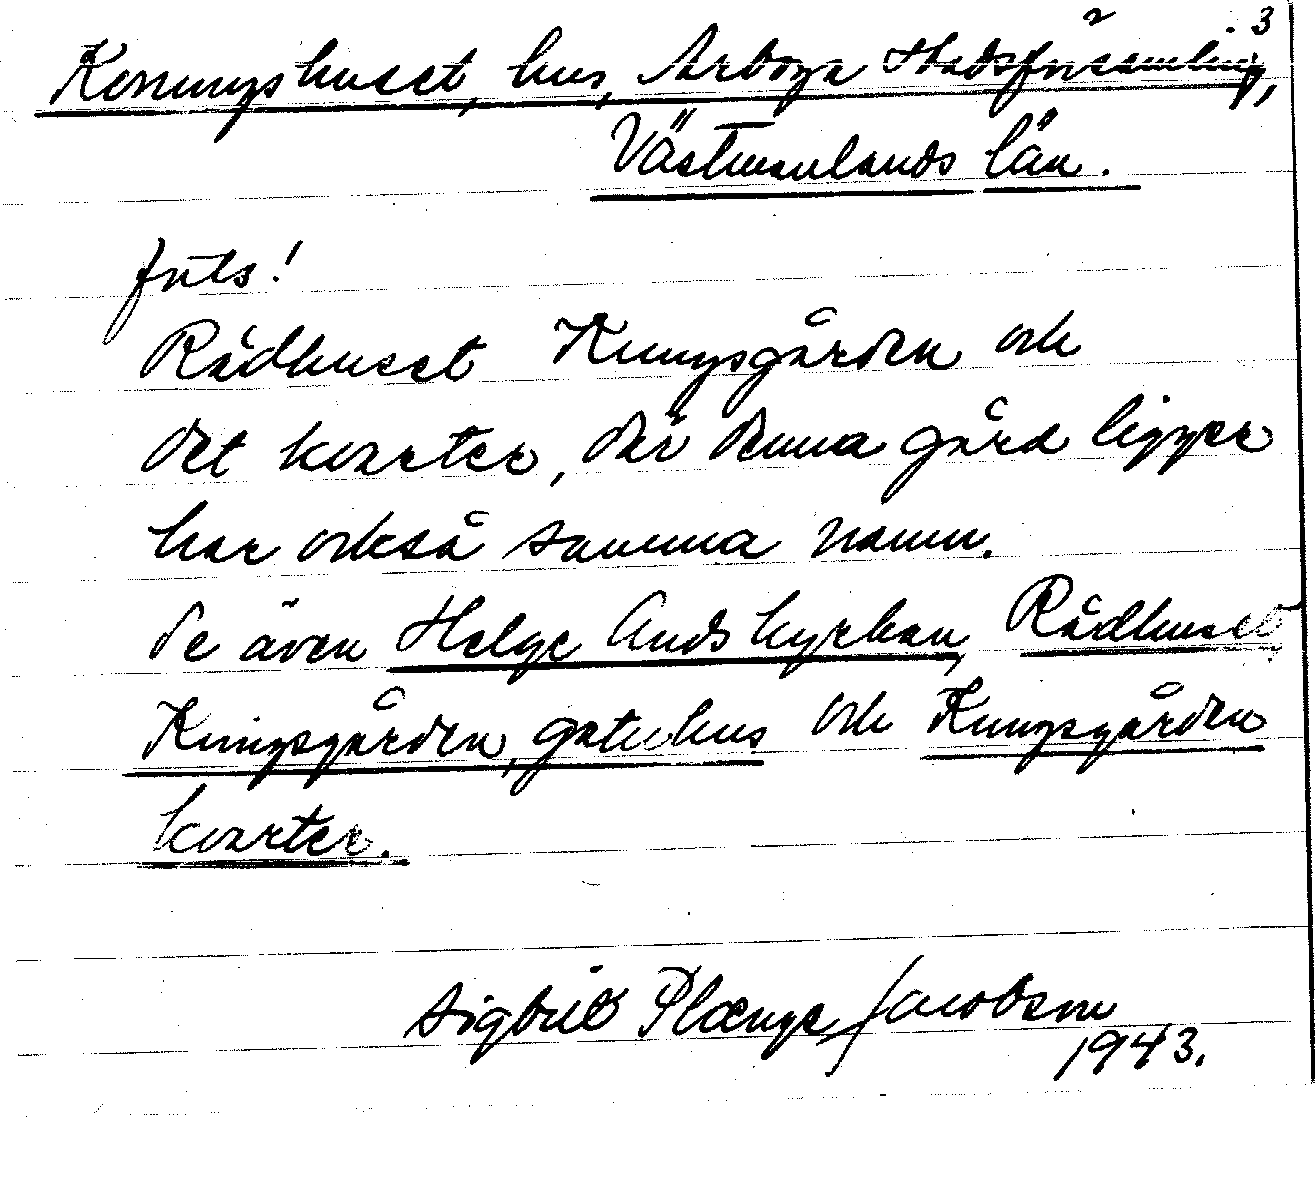 3
Konungshuset, hus, Arboga Stadsförsamling,
Västmanlands län.
forts!
Rådhuset Kungsgården och
det kvarter, där denna gård ligger
har också samma namn.
Se även Helge Ands kyrkan, Rådhuset
Kungsgården, gatuhus och Kungsgården
kvarter.
Sigbrit Plænge Jacobson
1943.